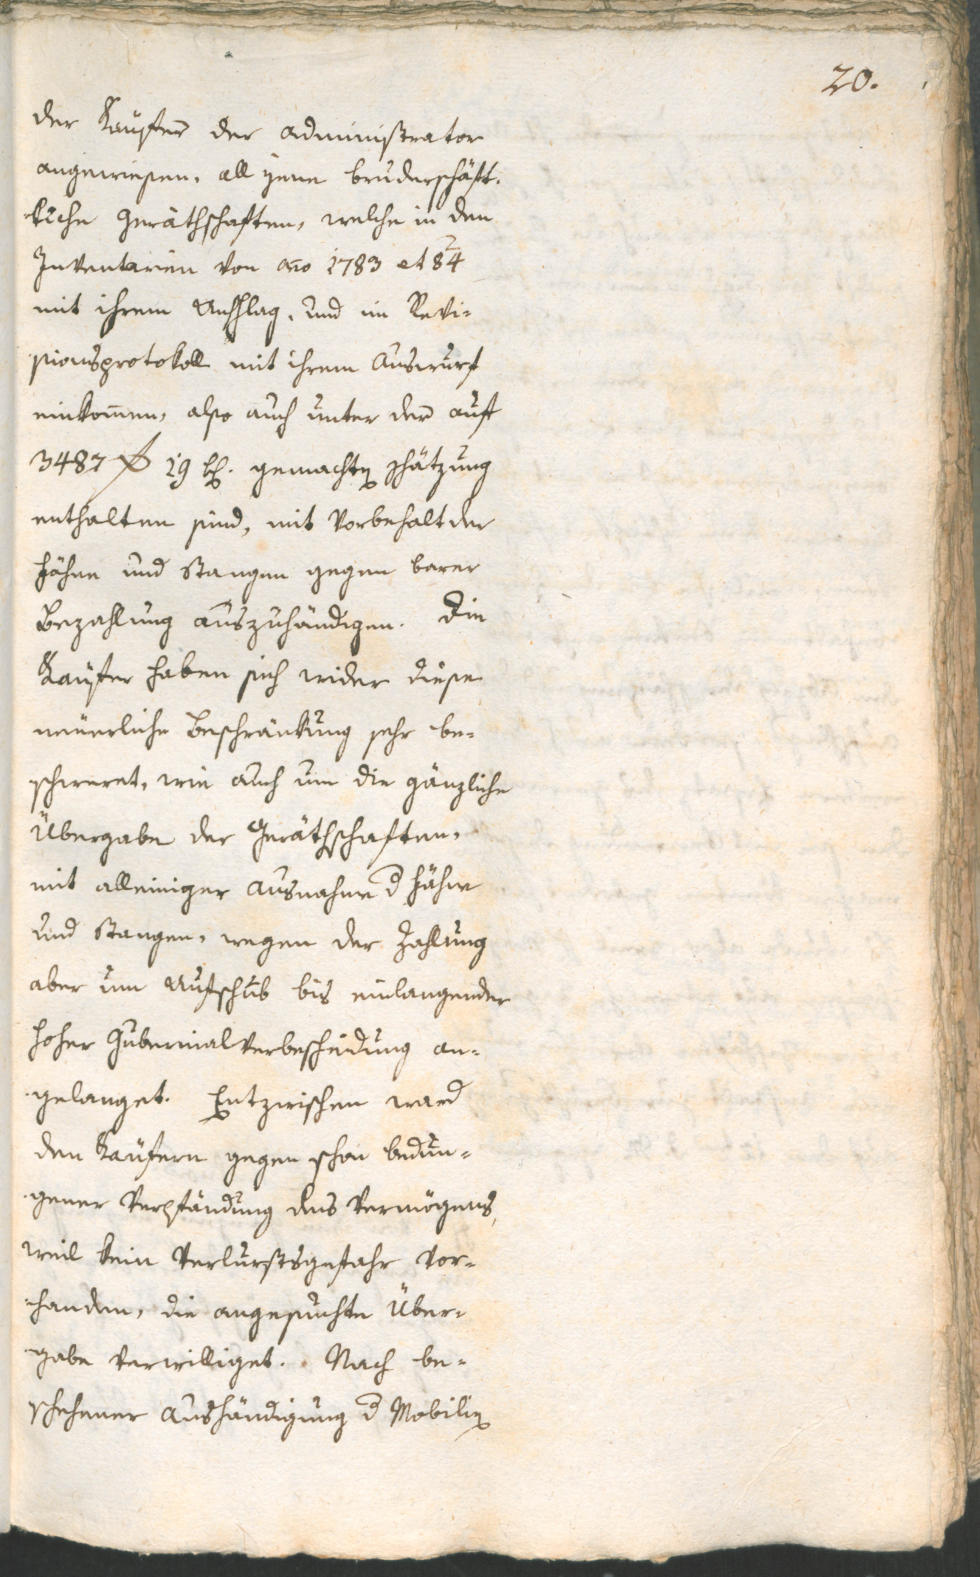 20.
der Käufer der administrator
angewiesen, all jene bruderschäft-
liche Geräthschaften, welche in den
Inventarien von ao 1783 et 84
mit ihrem Anschlag, und im Revi-
sionsprotokoll mit ihrem Auswurf
einkom̄en, also auch unter der auf
3487 f 19 x. gemachten schätzung
enthalten sind, mit Vorbehalt der
Fähne und Stangen gegen barer
Bezahlung auszuhändigen. Die
Käufer haben sich wider diese
neuerliche Beschränkung sehr be-
schweret, wie auch um die gänzliche
Übergabe der Geräthschaften,
mit alleiniger Ausnahme d Fähne
und Stangen, wegen der Zahlung
aber um Aufschub bis einlangender
hoher Gubernialverbescheidung an-
gelanget. Entzwischen ward
den Käufern gegen schon bedun-
gener Verpfändung des Vermögens,
weil kein Verlurstsgefahr vor-
handen, die angesuchte Über-
gabe verwilliget. Nach be-
schehener Aushändigung d Mobilien